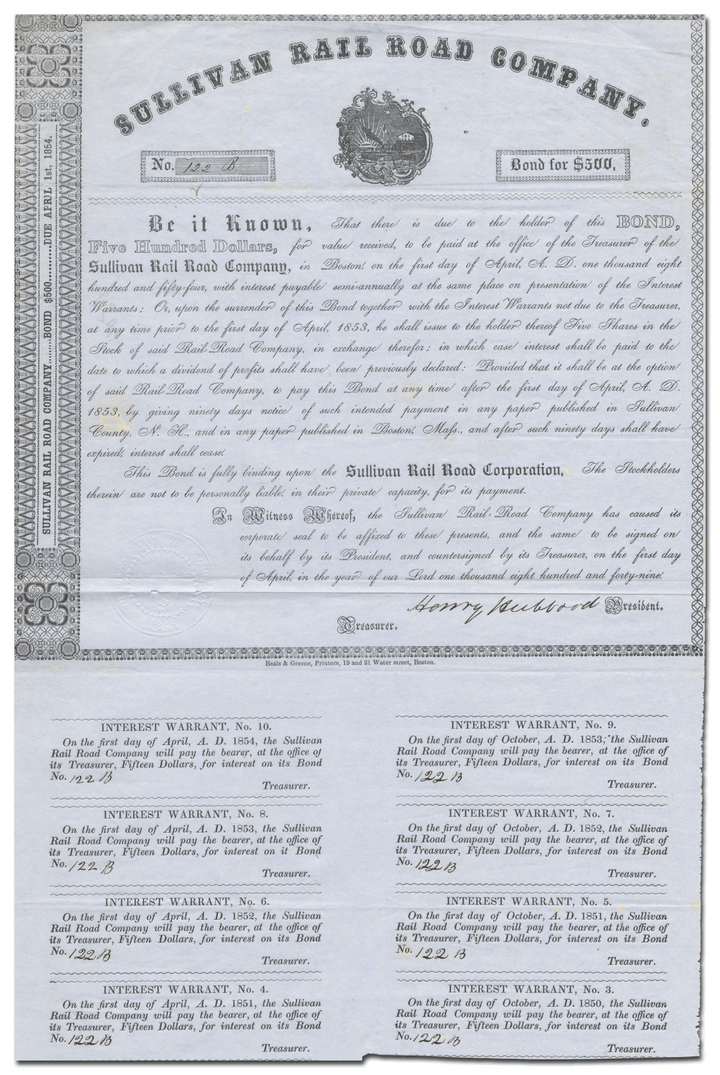 SULLIVAN RAIL ROAD COMPANY.
No. 122 B
Bond for $500,
SULLIVAN RAIL ROAD COMPANY.......BOND $500..........DUE APRIL 1st, 1854.
Be it Known, That there is due to the holder of this BOND,
Five Hundred Dollars, for value received, to be paid at the office of the Treasurer of the
Sullivan Rail Road Company, in Boston, on the first day of April, A. D. one thousand eight
hundred and fifty-four, with interest payable semi-annually at the same place on presentation of the Interest
Warrants; Or, upon the surrender of this Bond together with the Interest Warrants not due to the Treasurer,
at any time prior to the first day of April, 1853, he shall issue to the holder thereof Five Shares in the
Stock of said Rail-Road Company, in exchange therefor; in which case interest shall be paid to the
date to which a dividend of profits shall have been previously declared: Provided that it shall be at the option
of said Rail-Road Company, to pay this Bond at any time after the first day of April, A. D.
1853, by giving ninety days notice of such intended payment in any paper published in Sullivan
County, N. H., and in any paper published in Boston, Mass., and after such ninety days shall have
expired, interest shall cease.
This Bond is fully binding upon the Sullivan Rail Road Corporation, The Stockholders
therein are not to be personally liable, in their private capacity, for its payment.
In Witness Whereof, the Sullivan Rail-Road Company has caused its
corporate seal to be affixed to these presents, and the same to be signed on
its behalf by its President, and countersigned by its Treasurer, on the first day
of April, in the year of our Lord one thousand eight hundred and forty-nine.
Henry Hubbard President.
Treasurer.
Beals & Greene, Printers, 19 and 21 Water street, Boston.
INTEREST WARRANT, No. 10.
On the first day of April, A. D. 1854, the Sullivan
Rail Road Company will pay the bearer, at the office of
its Treasurer, Fifteen Dollars, for interest on its Bond
No. 122 B
Treasurer.
INTEREST WARRANT, No. 9.
On the first day of October, A. D. 1853, the Sullivan
Rail Road Company will pay the bearer, at the office of
its Treasurer, Fifteen Dollars, for interest on its Bond
No. 122 B
Treasurer.
INTEREST WARRANT, No. 8.
On the first day of April, A. D. 1853, the Sullivan
Rail Road Company will pay the bearer, at the office of
its Treasurer, Fifteen Dollars, for interest on it Bond
No. 122 B
Treasurer.
INTEREST WARRANT, No. 7.
On the first day of October, A. D. 1852, the Sullivan
Rail Road Company will pay the bearer, at the office of
its Treasurer, Fifteen Dollars, for interest on its Bond
No. 122 B
Treasurer.
INTEREST WARRANT, No. 6.
On the first day of April, A. D. 1852, the Sullivan
Rail Road Company will pay the bearer, at the office of
its Treasurer, Fifteen Dollars, for interest on its Bond
No. 122 B
Treasurer.
INTEREST WARRANT, No. 5.
On the first day of October, A. D. 1851, the Sullivan
Rail Road Company will pay the bearer, at the office of
its Treasurer, Fifteen Dollars, for interest on its Bond
No. 122 B
Treasurer.
INTEREST WARRANT, No. 4.
On the first day of April, A. D. 1851, the Sullivan
Rail Road Company will pay the bearer, at the office of
its Treasurer, Fifteen Dollars, for interest on its Bond
No. 122 B
Treasurer.
INTEREST WARRANT, No. 3.
On the first day of October, A. D. 1850, the Sullivan
Rail Road Company will pay the bearer, at the office of
its Treasurer, Fifteen Dollars, for interest on its Bond
No. 122 B
Treasurer.